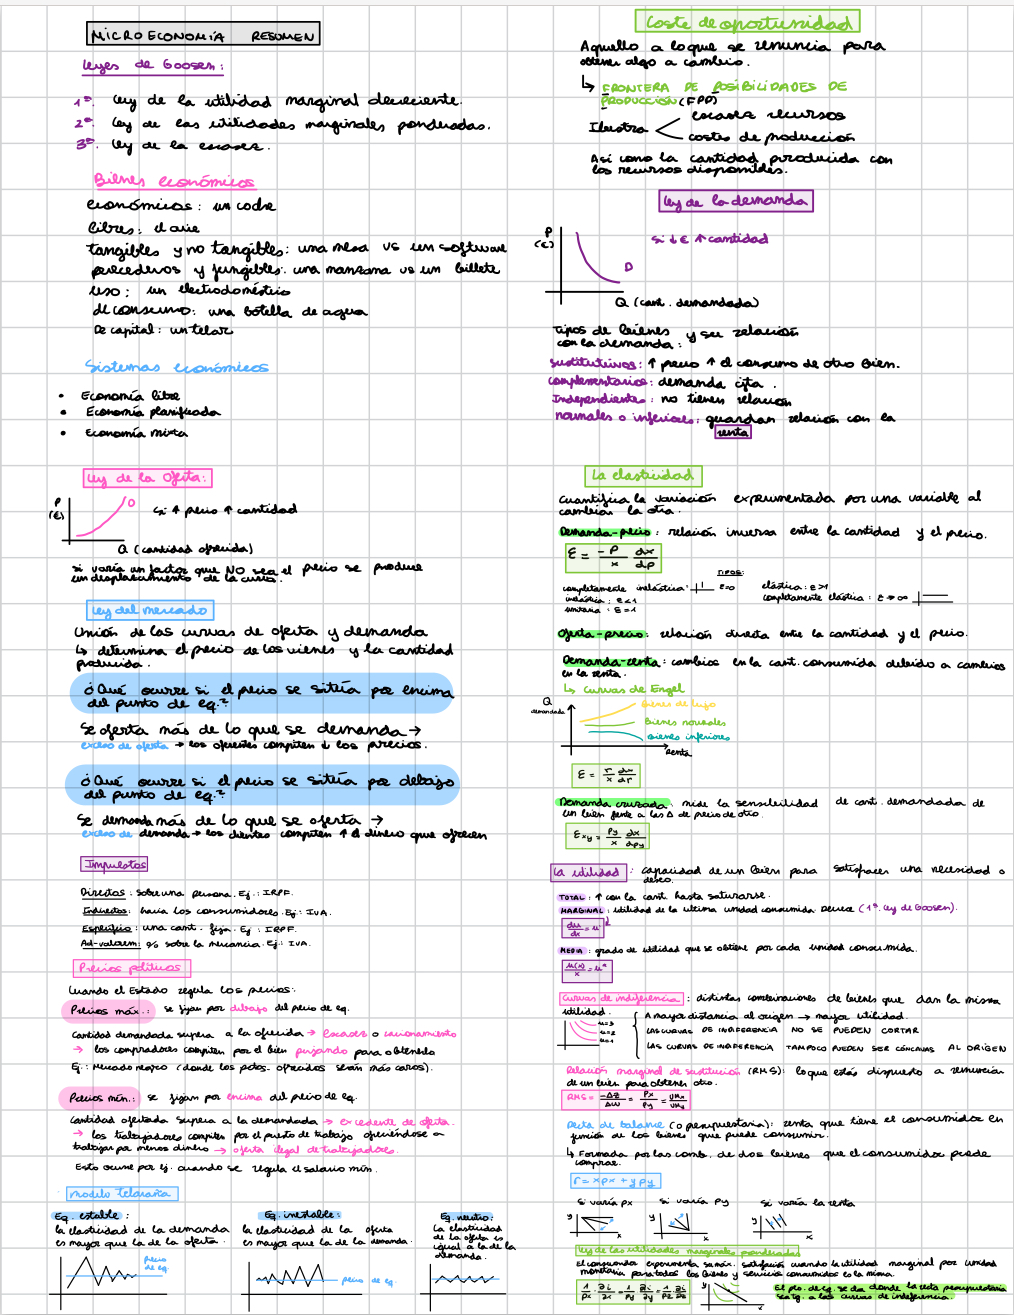 MICROECONOMÍA RESUMEN
Leyes de Goosen:
1ª. Ley de la utilidad marginal decreciente.
2ª. Ley de las utilidades marginales ponderadas.
3ª. Ley de la escasez.
Bienes económicos
económicos: un coche
libres: el aire
tangibles y no tangibles: una mesa vs un software
perecederos y fungibles: una manzana vs un billete
uso: un electrodoméstico
de consumo: una botella de agua
De capital: un telar
Sistemas económicos
• Economía libre
• Economía planificada
• Economía mixta
Ley de la Oferta:
P
(€)
O
si ↑ precio ↑ cantidad
Q (cantidad ofrecida)
si varía un factor que NO sea el precio se produce
un desplazamiento de la curva.
Ley del mercado
Unión de las curvas de oferta y demanda
↳ determina el precio de los vienes y la cantidad
producida.
¿Qué ocurre si el precio se sitúa por encima
del punto de eq.?
Se oferta más de lo que se demanda →
exceso de oferta → los oferentes compiten ↓ los precios.
¿Qué ocurre si el precio se sitúa por debajo
del punto de eq.?
Se demanda más de lo que se oferta →
exceso de demanda → los clientes compiten ↑ el dinero que ofrecen
Impuestos
Directos: sobre una persona. Ej.: IRPF.
Indirectos: hacia los consumidores. Ej.: IVA.
Específico: una cant. fija. Ej.: IRPF.
Ad-valorem: % sobre la mercancía. Ej.: IVA.
Precios políticos
Cuando el Estado regula los precios:
Precios máx.: se fijan por debajo del precio de eq.
Cantidad demandada supera a la ofrecida → escasez o racionamiento
→ los compradores compiten por el bien pujando para obtenerlo
Ej.: Mercado negro (donde los pctos. ofrecidos serán más caros).
Precios mín.: se fijan por encima del precio de eq.
Cantidad ofertada supera a la demandada → excedente de oferta.
→ los trabajadores compiten por el puesto de trabajo ofreciéndose a
trabajar por menos dinero → oferta ilegal de trabajadores.
Esto ocurre por ej. cuando se regula el salario mín.
Modelo Telaraña
Eq. estable:
la elasticidad de la demanda
es mayor que la de la oferta.
precio
de eq.
Eq. inestable:
la elasticidad de la oferta
es mayor que la de la demanda.
precio de eq.
Eq. neutro:
La elasticidad
de la oferta es
igual a la de la
demanda.
Coste de oportunidad
Aquello a lo que se renuncia para
obtener algo a cambio.
↳ FRONTERA DE POSIBILIDADES DE
PRODUCCIÓN (FPP)
Ilustra
escasez recursos
costes de producción
Así como la cantidad producida con
los recursos disponibles.
Ley de la demanda
P
(€)
si ↓ € ↑ cantidad
D
Q (cant. demandada)
Tipos de bienes y su relación
con la demanda:
sustitutivos: ↑ precio ↑ el consumo de otro bien.
complementarios: demanda cjta.
Independientes: no tienen relación
normales o inferiores: guardan relación con la
renta
La elasticidad
Cuantifica la variación experimentada por una variable al
cambiar la otra.
Demanda-precio: relación inversa entre la cantidad y el precio.
ε = -P/x dx/dp
TIPOS:
completamente inelástica: ε=0
inelástica: ε<1
unitaria: ε=1
elástica: ε>1
completamente elástica: ε→∞
Oferta-precio: relación directa entre la cantidad y el precio.
Demanda-renta: cambios en la cant. consumida debido a cambios
en la renta.
↳ Curvas de Engel
Q
demandada
Bienes de lujo
Bienes normales
Bienes inferiores
Renta
ε = r/x dx/dr
Demanda cruzada: mide la sensibilidad de cant. demandada de
un bien frente a las Δ de precio de otro.
εxy = Py/x dx/dpy
La utilidad: capacidad de un bien para satisfacer una necesidad o
deseo.
TOTAL: ↑ con la cant. hasta saturarse.
MARGINAL: utilidad de la última unidad consumida. Decrece (1ª. Ley de Goosen).
du/dx = u'
MEDIA: grado de utilidad que se obtiene por cada unidad consumida.
u(x)/x = uª
Curvas de indiferencia: distintas combinaciones de bienes que dan la misma
utilidad.
u=3
u=2
u=1
A mayor distancia al origen → mayor utilidad.
LAS CURVAS DE INDIFERENCIA NO SE PUEDEN CORTAR
LAS CURVAS DE INDIFERENCIA TAMPOCO PUEDEN SER CÓNCAVAS AL ORIGEN
Relación marginal de sustitución (RMS): lo que estás dispuesto a renunciar
de un bien para obtener otro.
RMS = = Px/Py =
Recta de balance (o presupuestaria): renta que tiene el consumidor en
función de los bienes que puede consumir.
↳ Formada por las comb. de dos bienes que el consumidor puede
comprar.
r = x px + y py
si varía px
si varía py
si varía la renta
y
x
y
x
y
x
Ley de las utilidades marginales ponderadas
El consumidor experimenta su máx. satisfacción cuando la utilidad marginal por unidad
monetaria para todos los bienes y servicios consumidos es la misma.
y
x
El pto. de eq. se da donde la recta presupuestaria
sea tg. a las curvas de indiferencia.